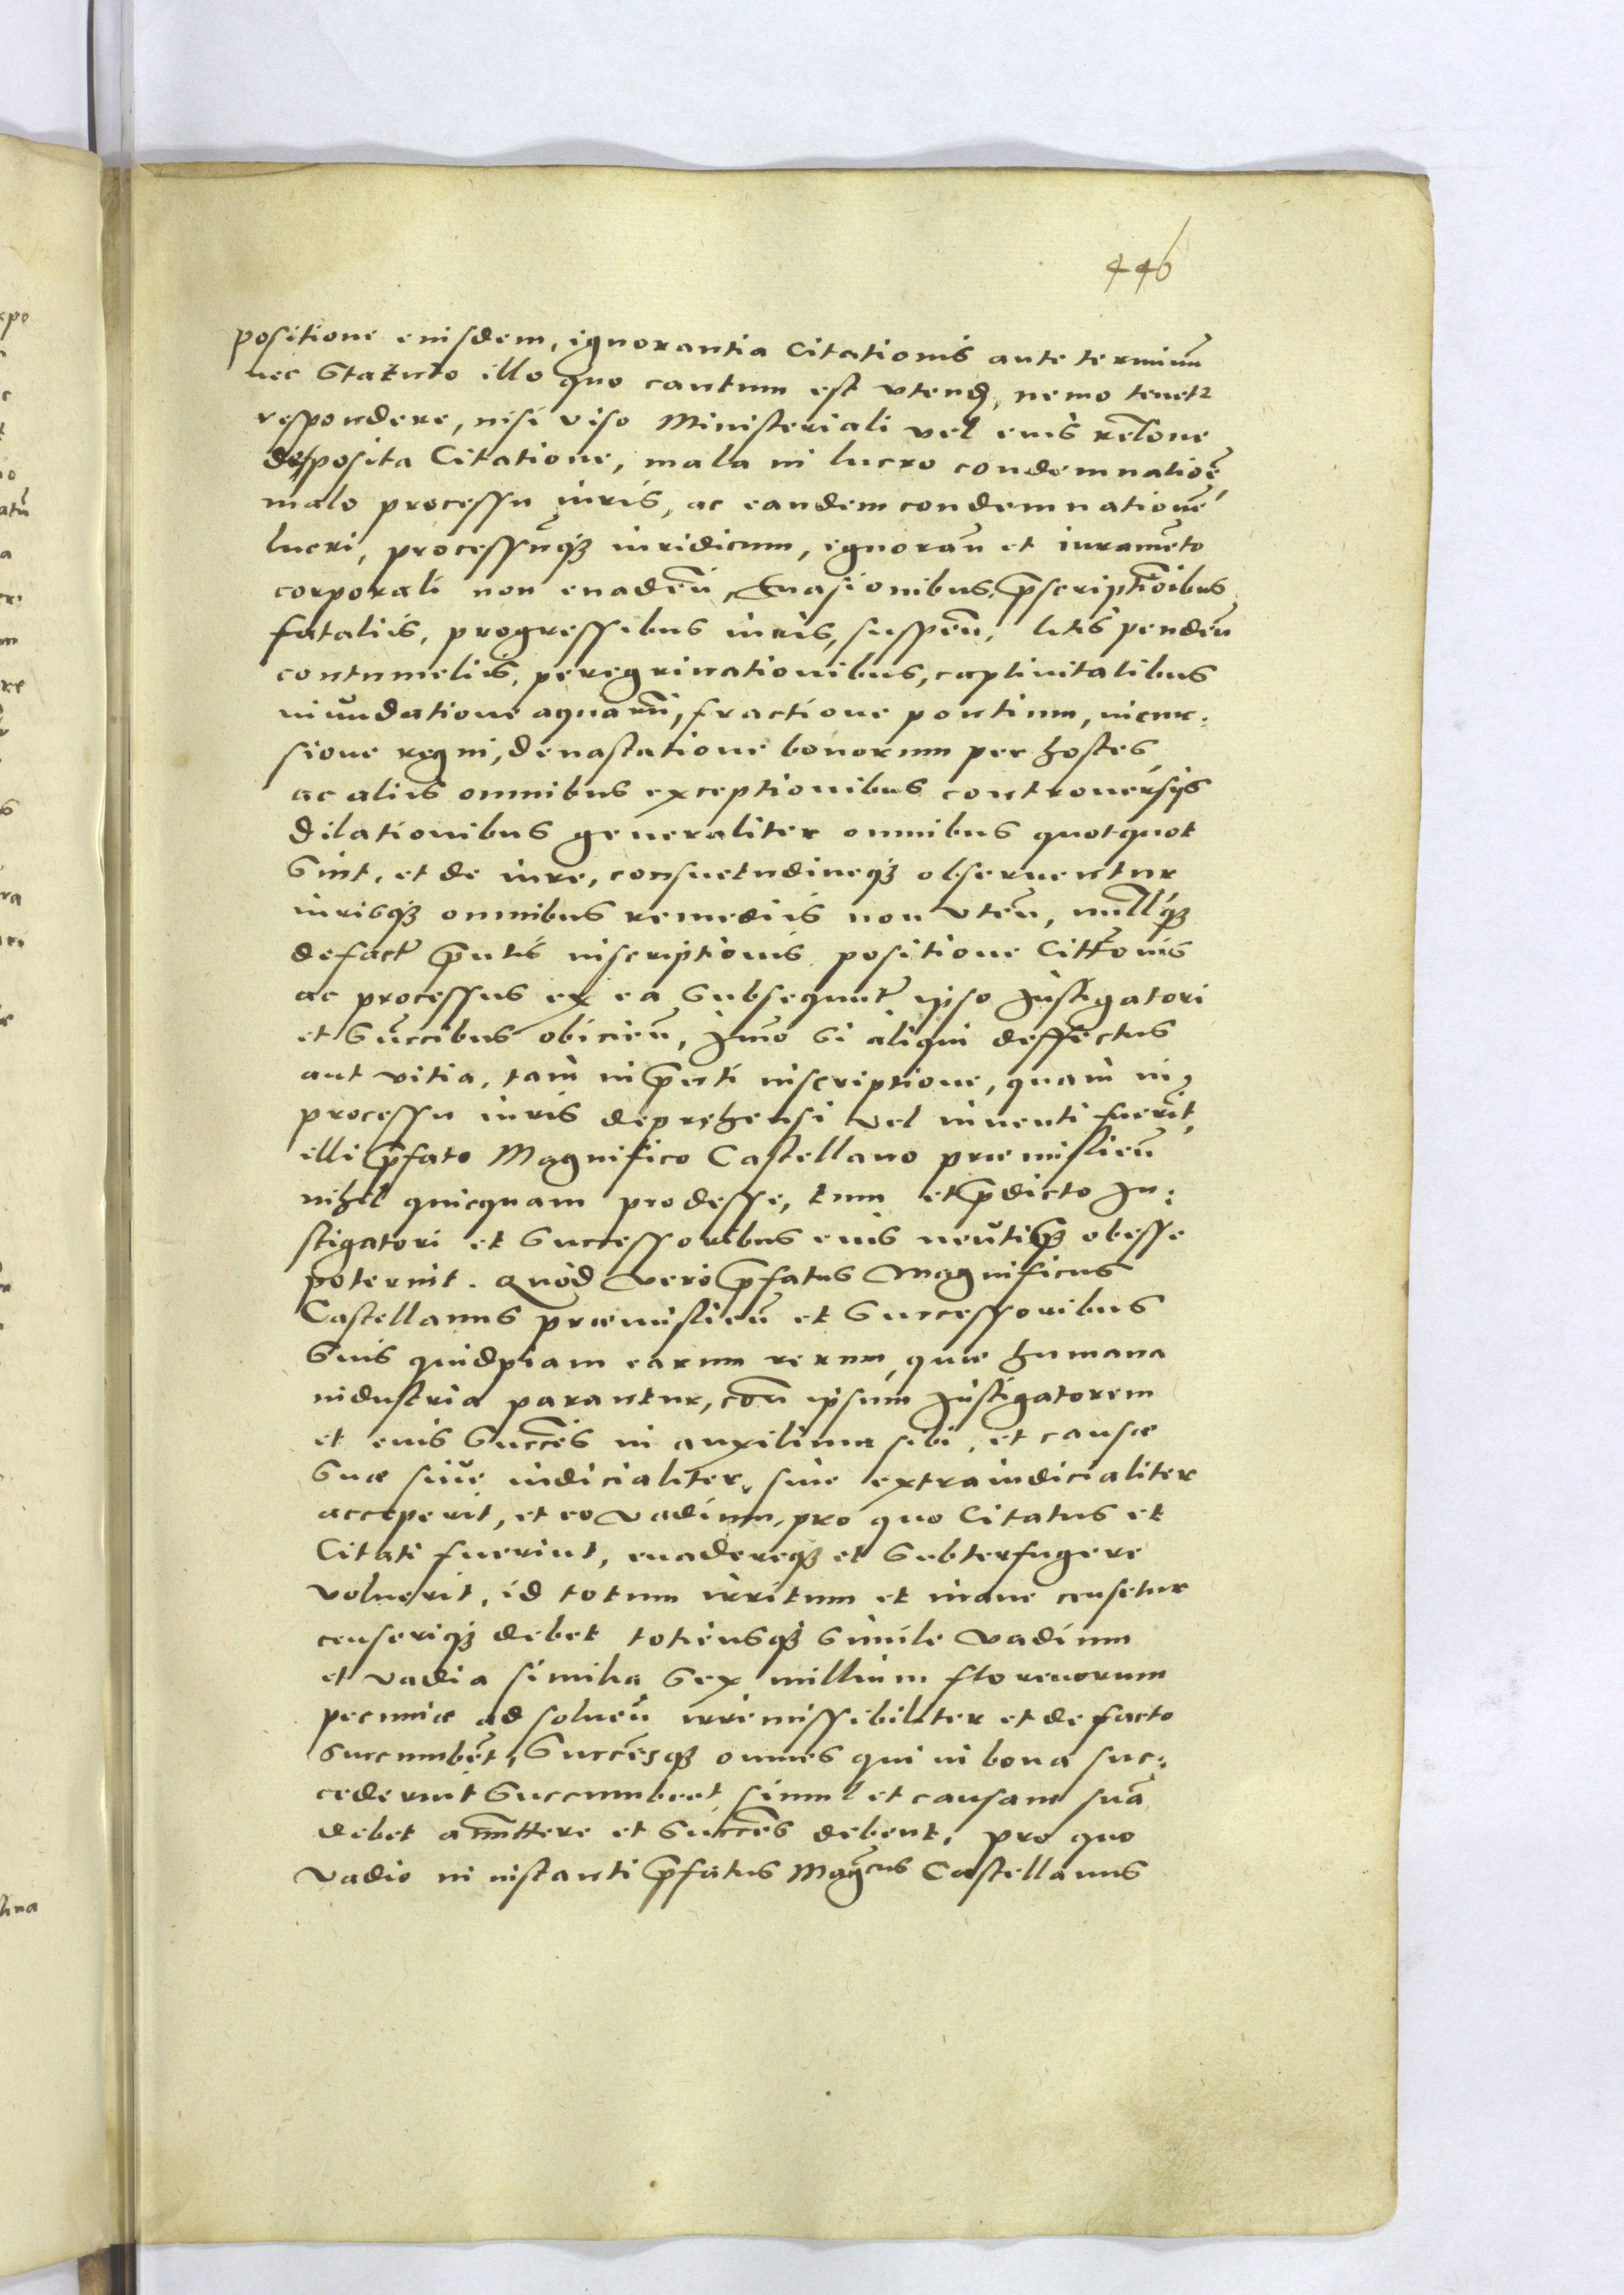 446
positione eiusdem, ignorantia Citationis ante terminū
nec Statuto illo quo cautum est vtend, nemo tenetr
respondere, nisi viso Ministeriali vel eius reltone
deposita Citatione, mala in lucro condemnatioē
malo processu iuris, ac eandem condemnationē
lucri, processūq3 iuridicum, ignorān et iuramēto
corporali non euadēn, Euasionibus, pscriptioībus
fataliis, progressibus iuris, suspēn, litis pendēn
contumeliis, peregrinationibus, captiuitatibus
inūndatione aquarū, fractione pontium, incur:
sione regni, deuastatione bonorum per hostes,
ac aliis omnibus exceptionibus controuersijs
dilationibus generaliter omnibus quotquot
Sint, et de iure, consuetudineq3 obseruentur
iurisq3 omnibus remediis non vtēn, nullūq3
defect pntis inscriptionis positione Cittonis
ac processus ex ea Subsequent ipso Instigatori
et Succībus obiicien, Imo Si aliqui deffectus
aut vitia, tam in pnti inscriptione, quam in
processu iuris deprehensi vel inuenti fuerīt,
illi pfato Magnifico Castellano præmisliēn
nihil quicquam prodesse, tum et pdicto In:
stigatori et Successoribus eius neutiq3 obesse
poterint. Quod vero pfatus Magnificus
Castellanus præmisliēn et Successoribus
Suis quidpiam earum rerum, quæ humana
industria parantur, con ipsum Instigatorem
et eius Succēs in auxilium sibi, et causæ
Suæ siue iudicialiter, siue extraiudicialiter
acceperit, et eo vadium, pro quo Citatus et
Citati fuerint, euadereq3 et Subterfugere
voluerit, id totum irritum et inane censetur
censeriq3 debet totiensq3 Simile vadium
et vadia similia Sex millium florenorum
pecuniæ ad soluēn irremissibiliter et de facto
Succumbēt, Succēsq3 omnes qui in bona suc:
cederint Succumbent, simul et causam suā
debet amittere et Succēs debent, pro quo
vadio in instanti pfatus Magcus Castellanus